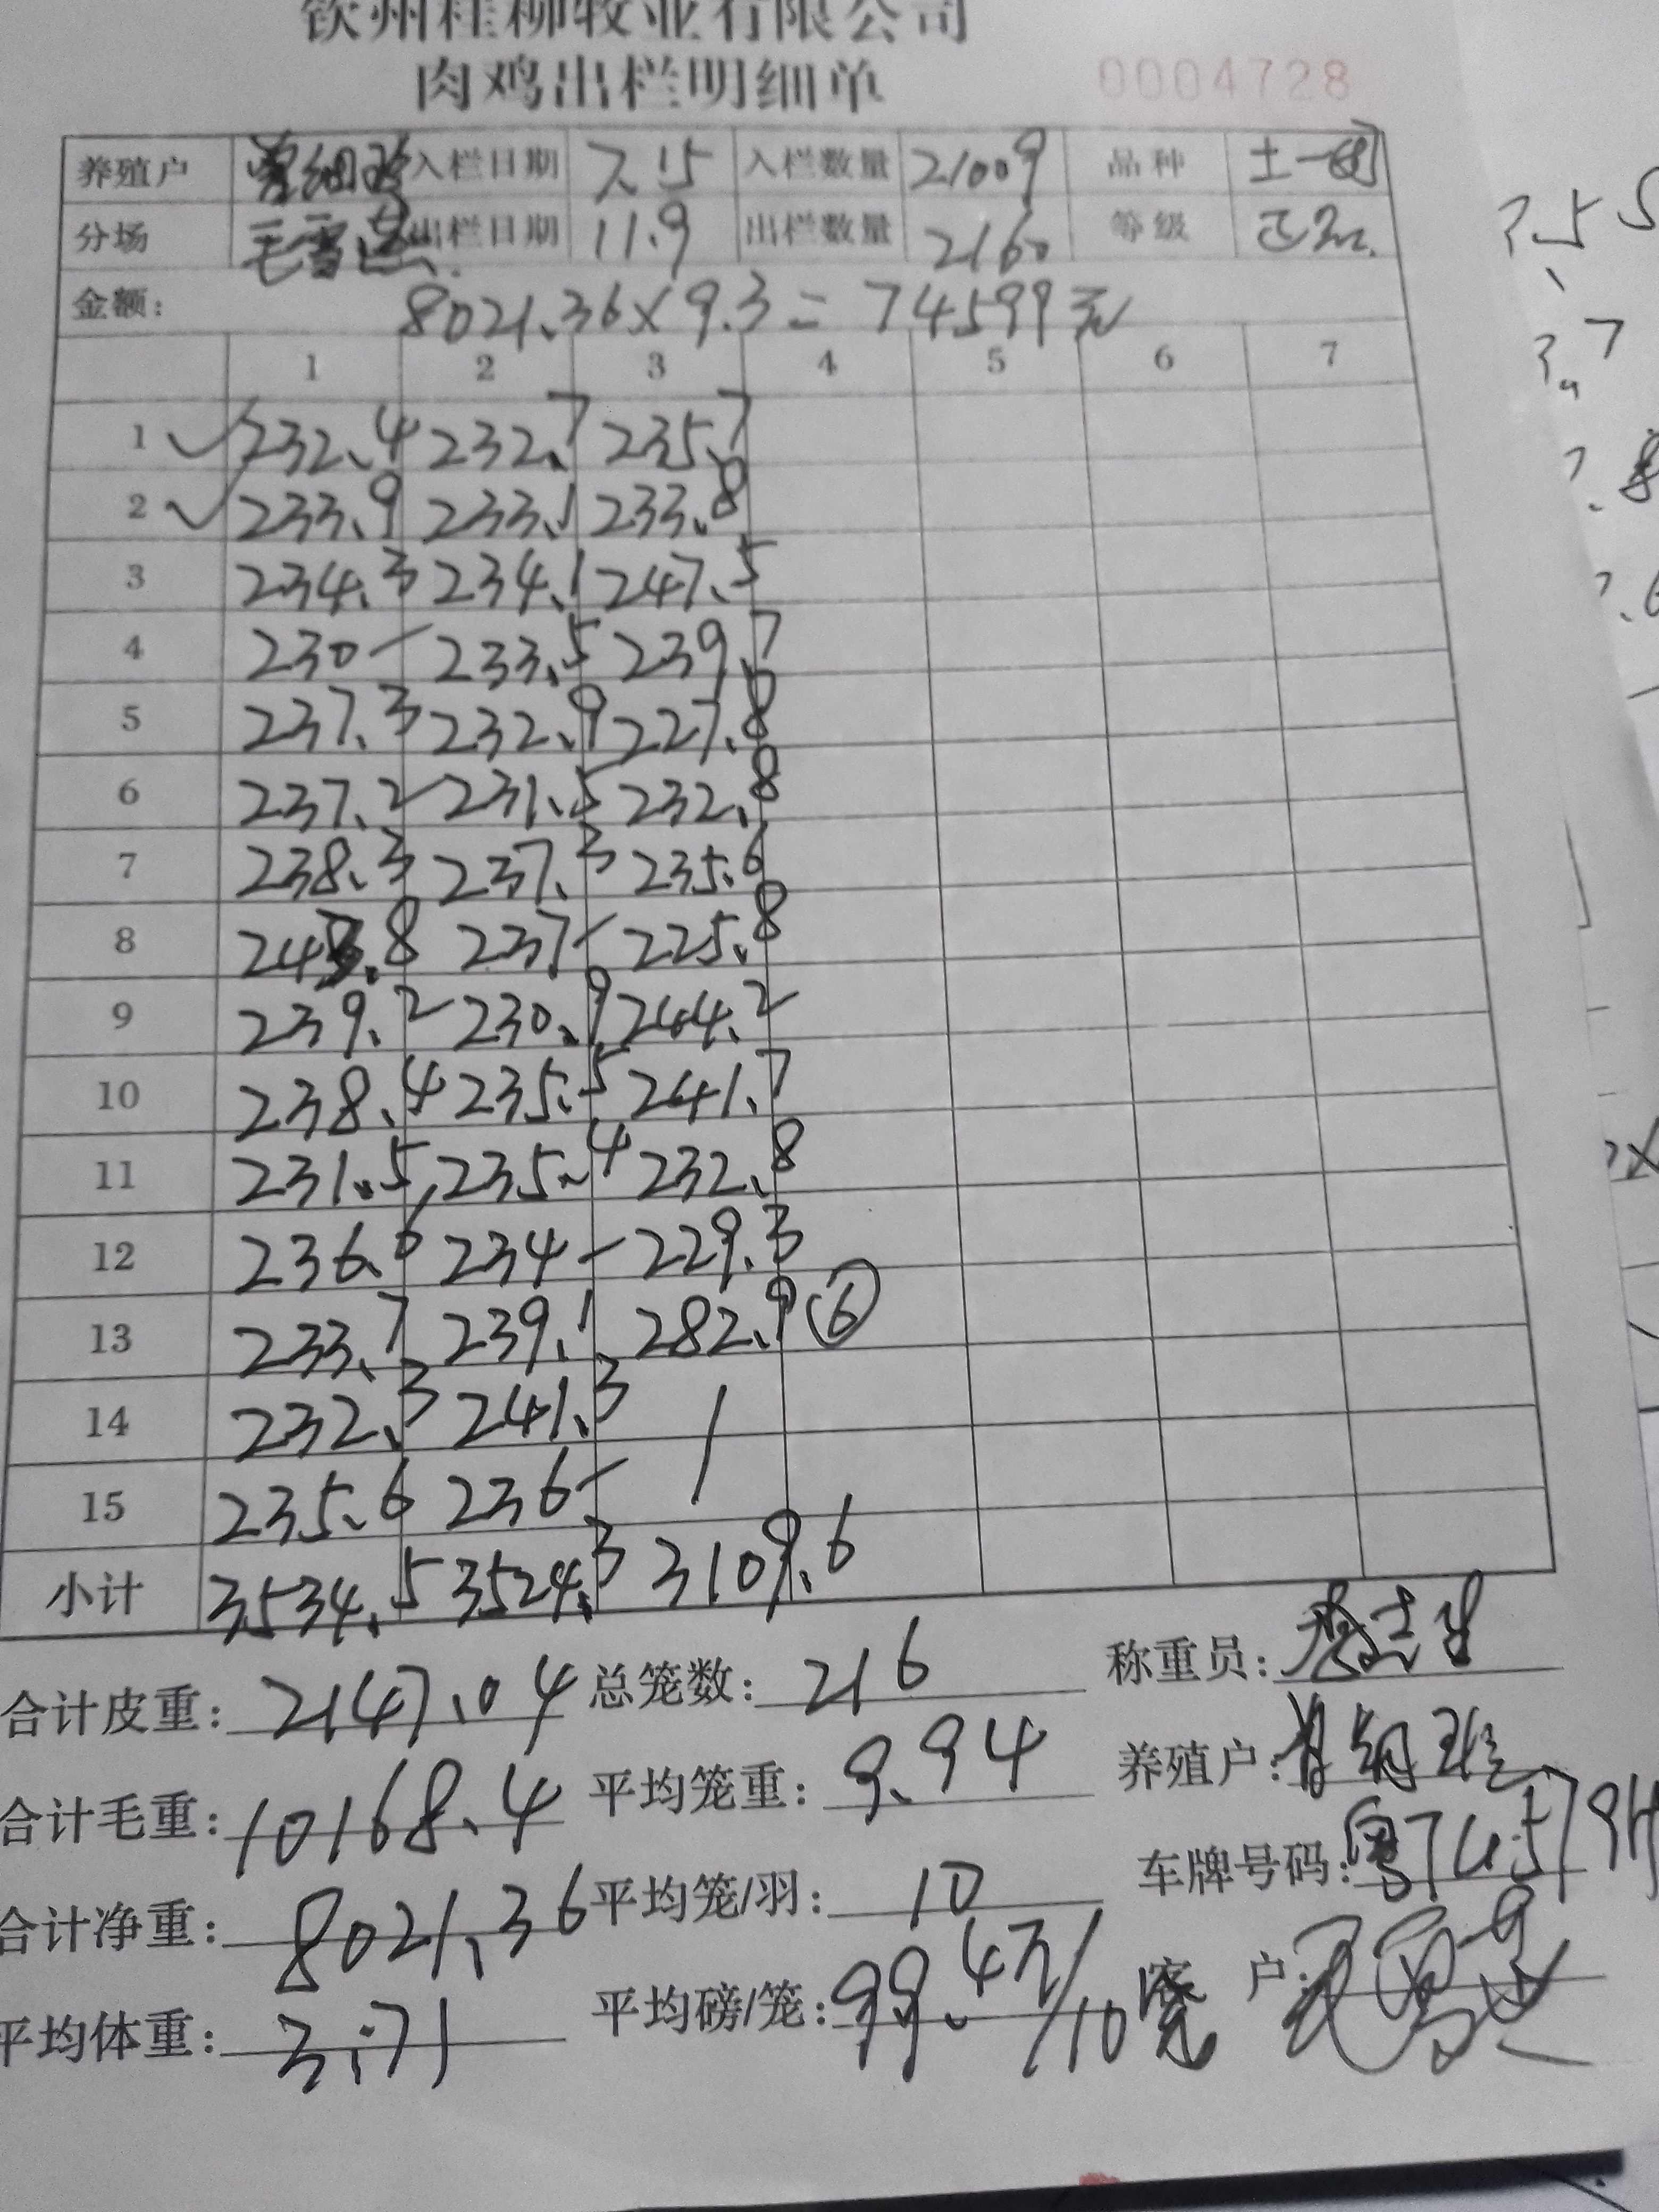 钦州桂柳牧业有限公司
肉鸡出栏明细单 0004728
养殖户 入栏日期 7.15 入栏数量 21009 品种 土一
分场 毛雪 出栏日期 11.9 出栏数量 2160 等级 正
金额: 8021.36×9.3=74599元
1 2 3 4 5 6 7
1 232.4 232.7 235.7
2 233.9 233.1 233.8
3 234.3 234.1 247.5
4 230- 233.5 239.7
5 237.3 232.9 227.8
6 237.2 231.5 232.8
7 238.3 237.3 235.6
8 243.8 237- 225.8
9 239.2 230.9 244.2
10 238.4 235.5 241.7
11 231.5 235.4 232.8
12 236.6 234- 229.3
13 233.7 239.1 282.9 ⑥
14 232.3 241.3 /
15 235.6 236-
小计 3534.5 3524.3 3109.6
合计皮重: 2147.04 总笼数: 216 称重员:
合计毛重: 10168.4 平均笼重: 9.94 养殖户:
合计净重: 8021.36 平均笼/羽: 10 车牌号码: 粤
平均体重: 3.71 平均磅/笼: 99.4斤/10笼 客户: